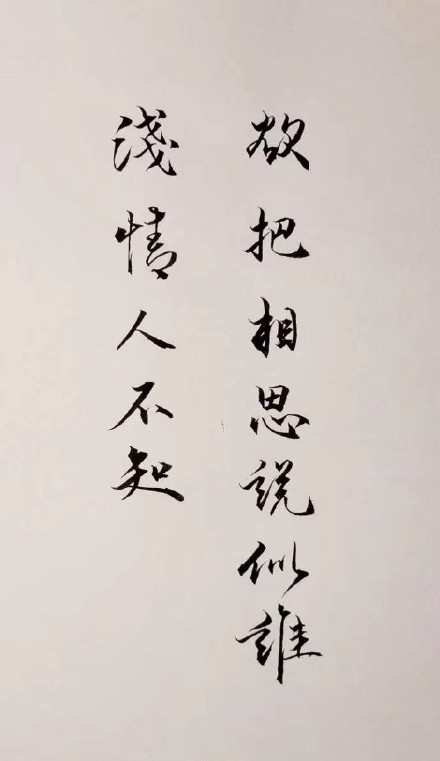 欲把相思說似誰
淺情人不知